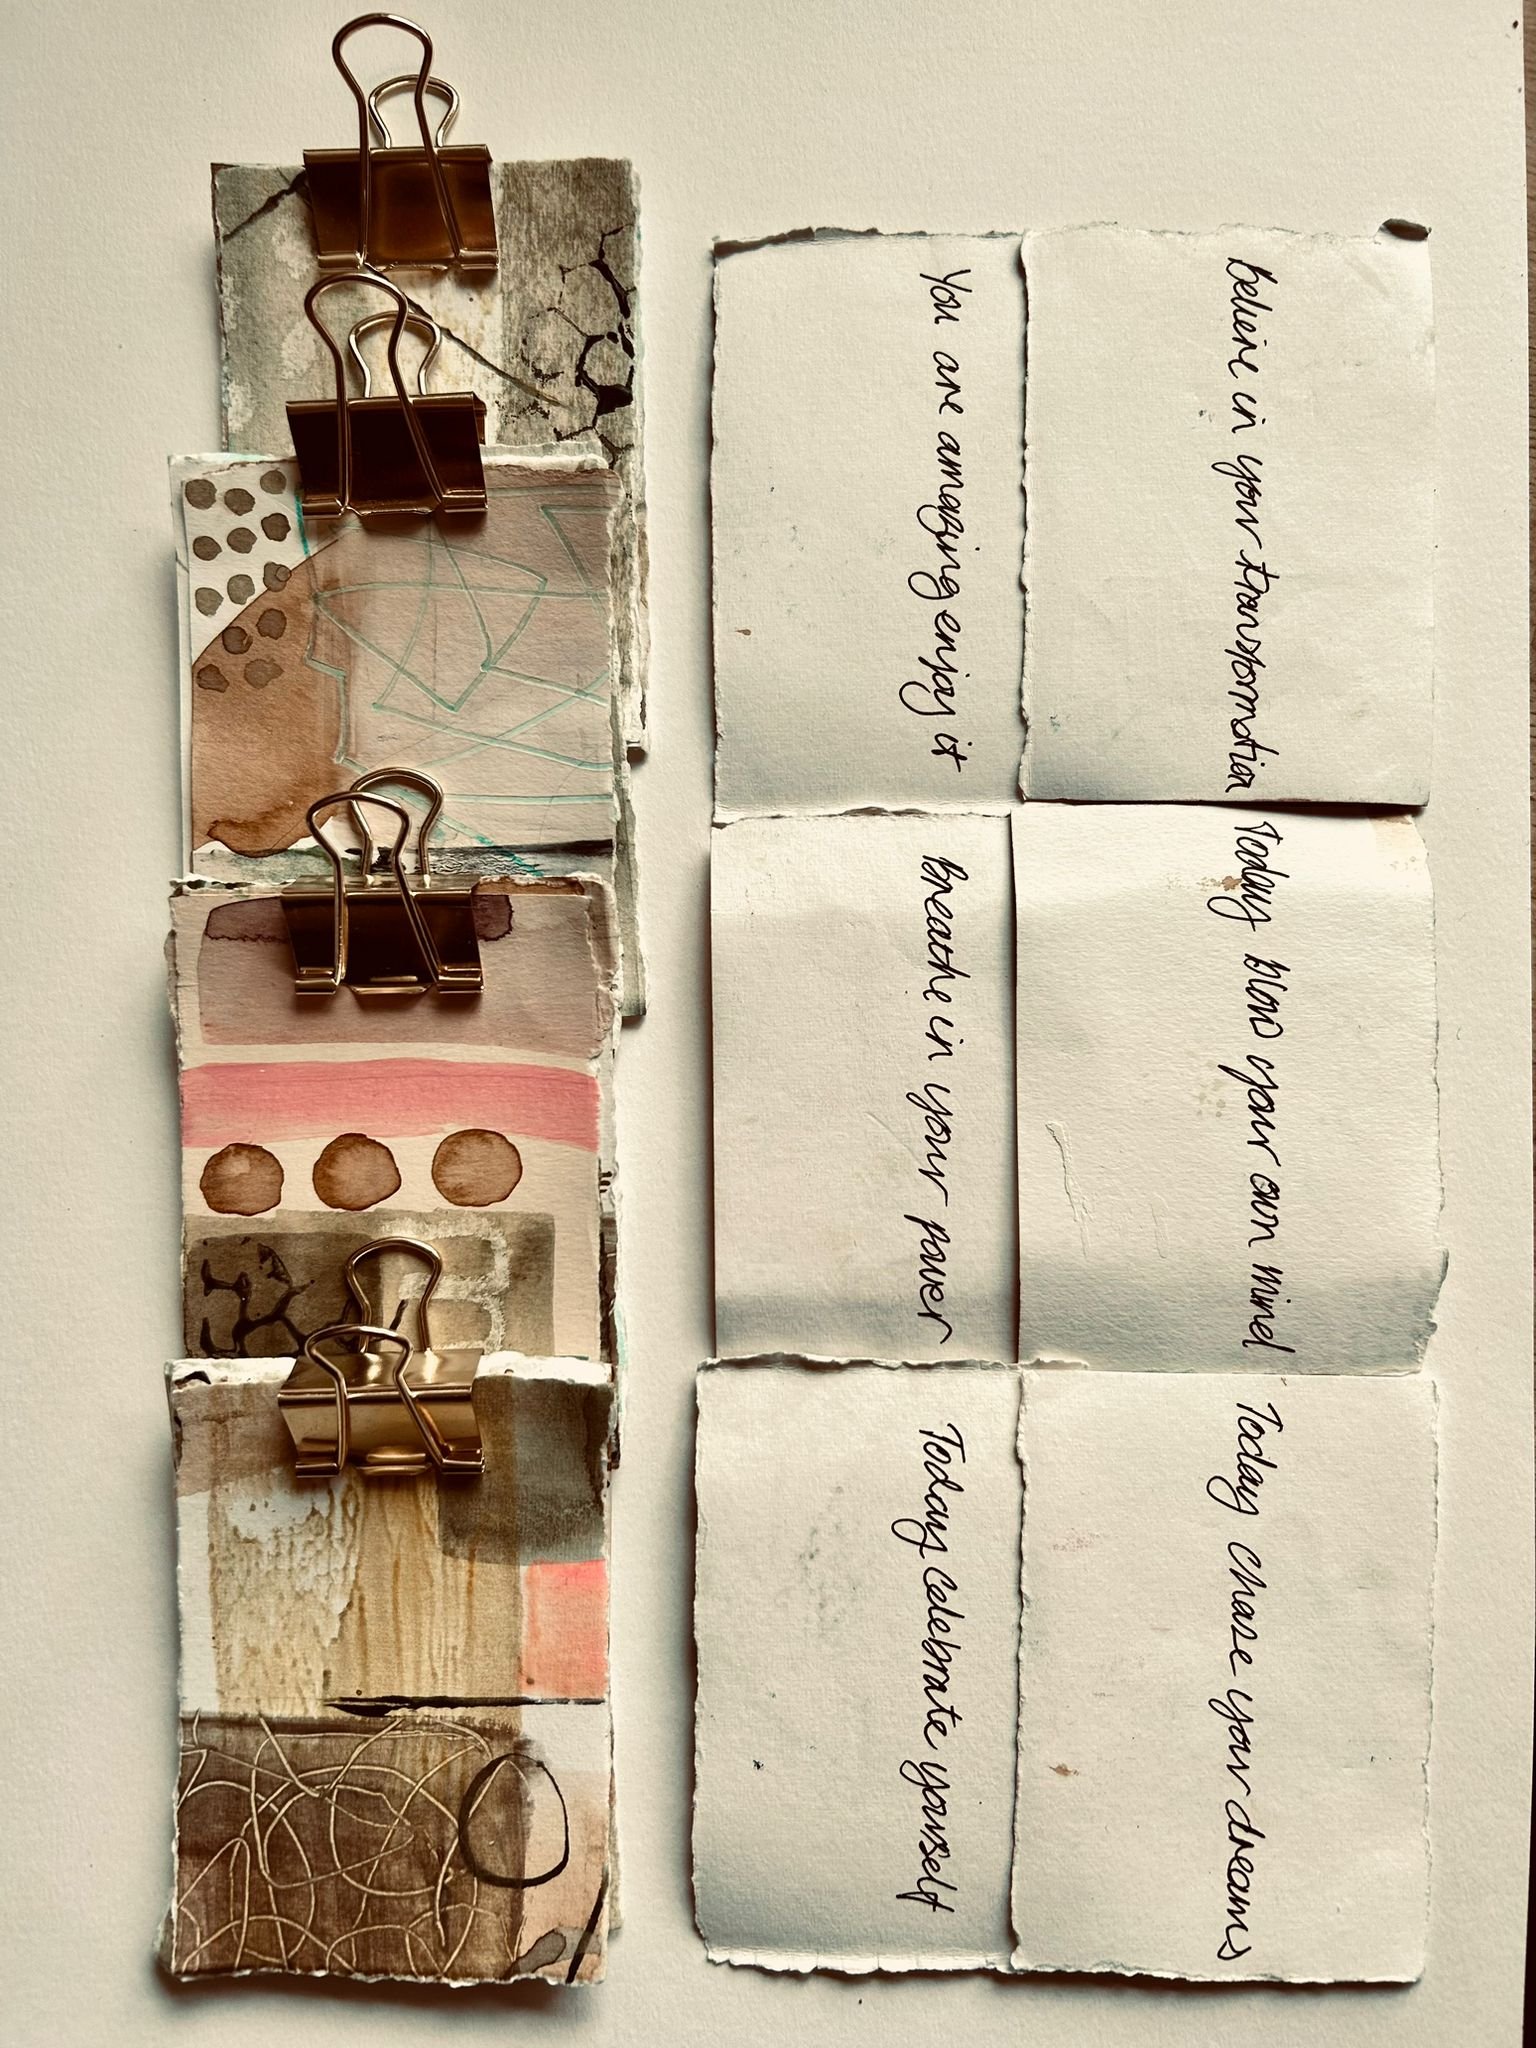 believe in your transformation
Today blow your own mind
Today chase your dreams
You are amazing enjoy it
Breathe in your power
Today celebrate yourself